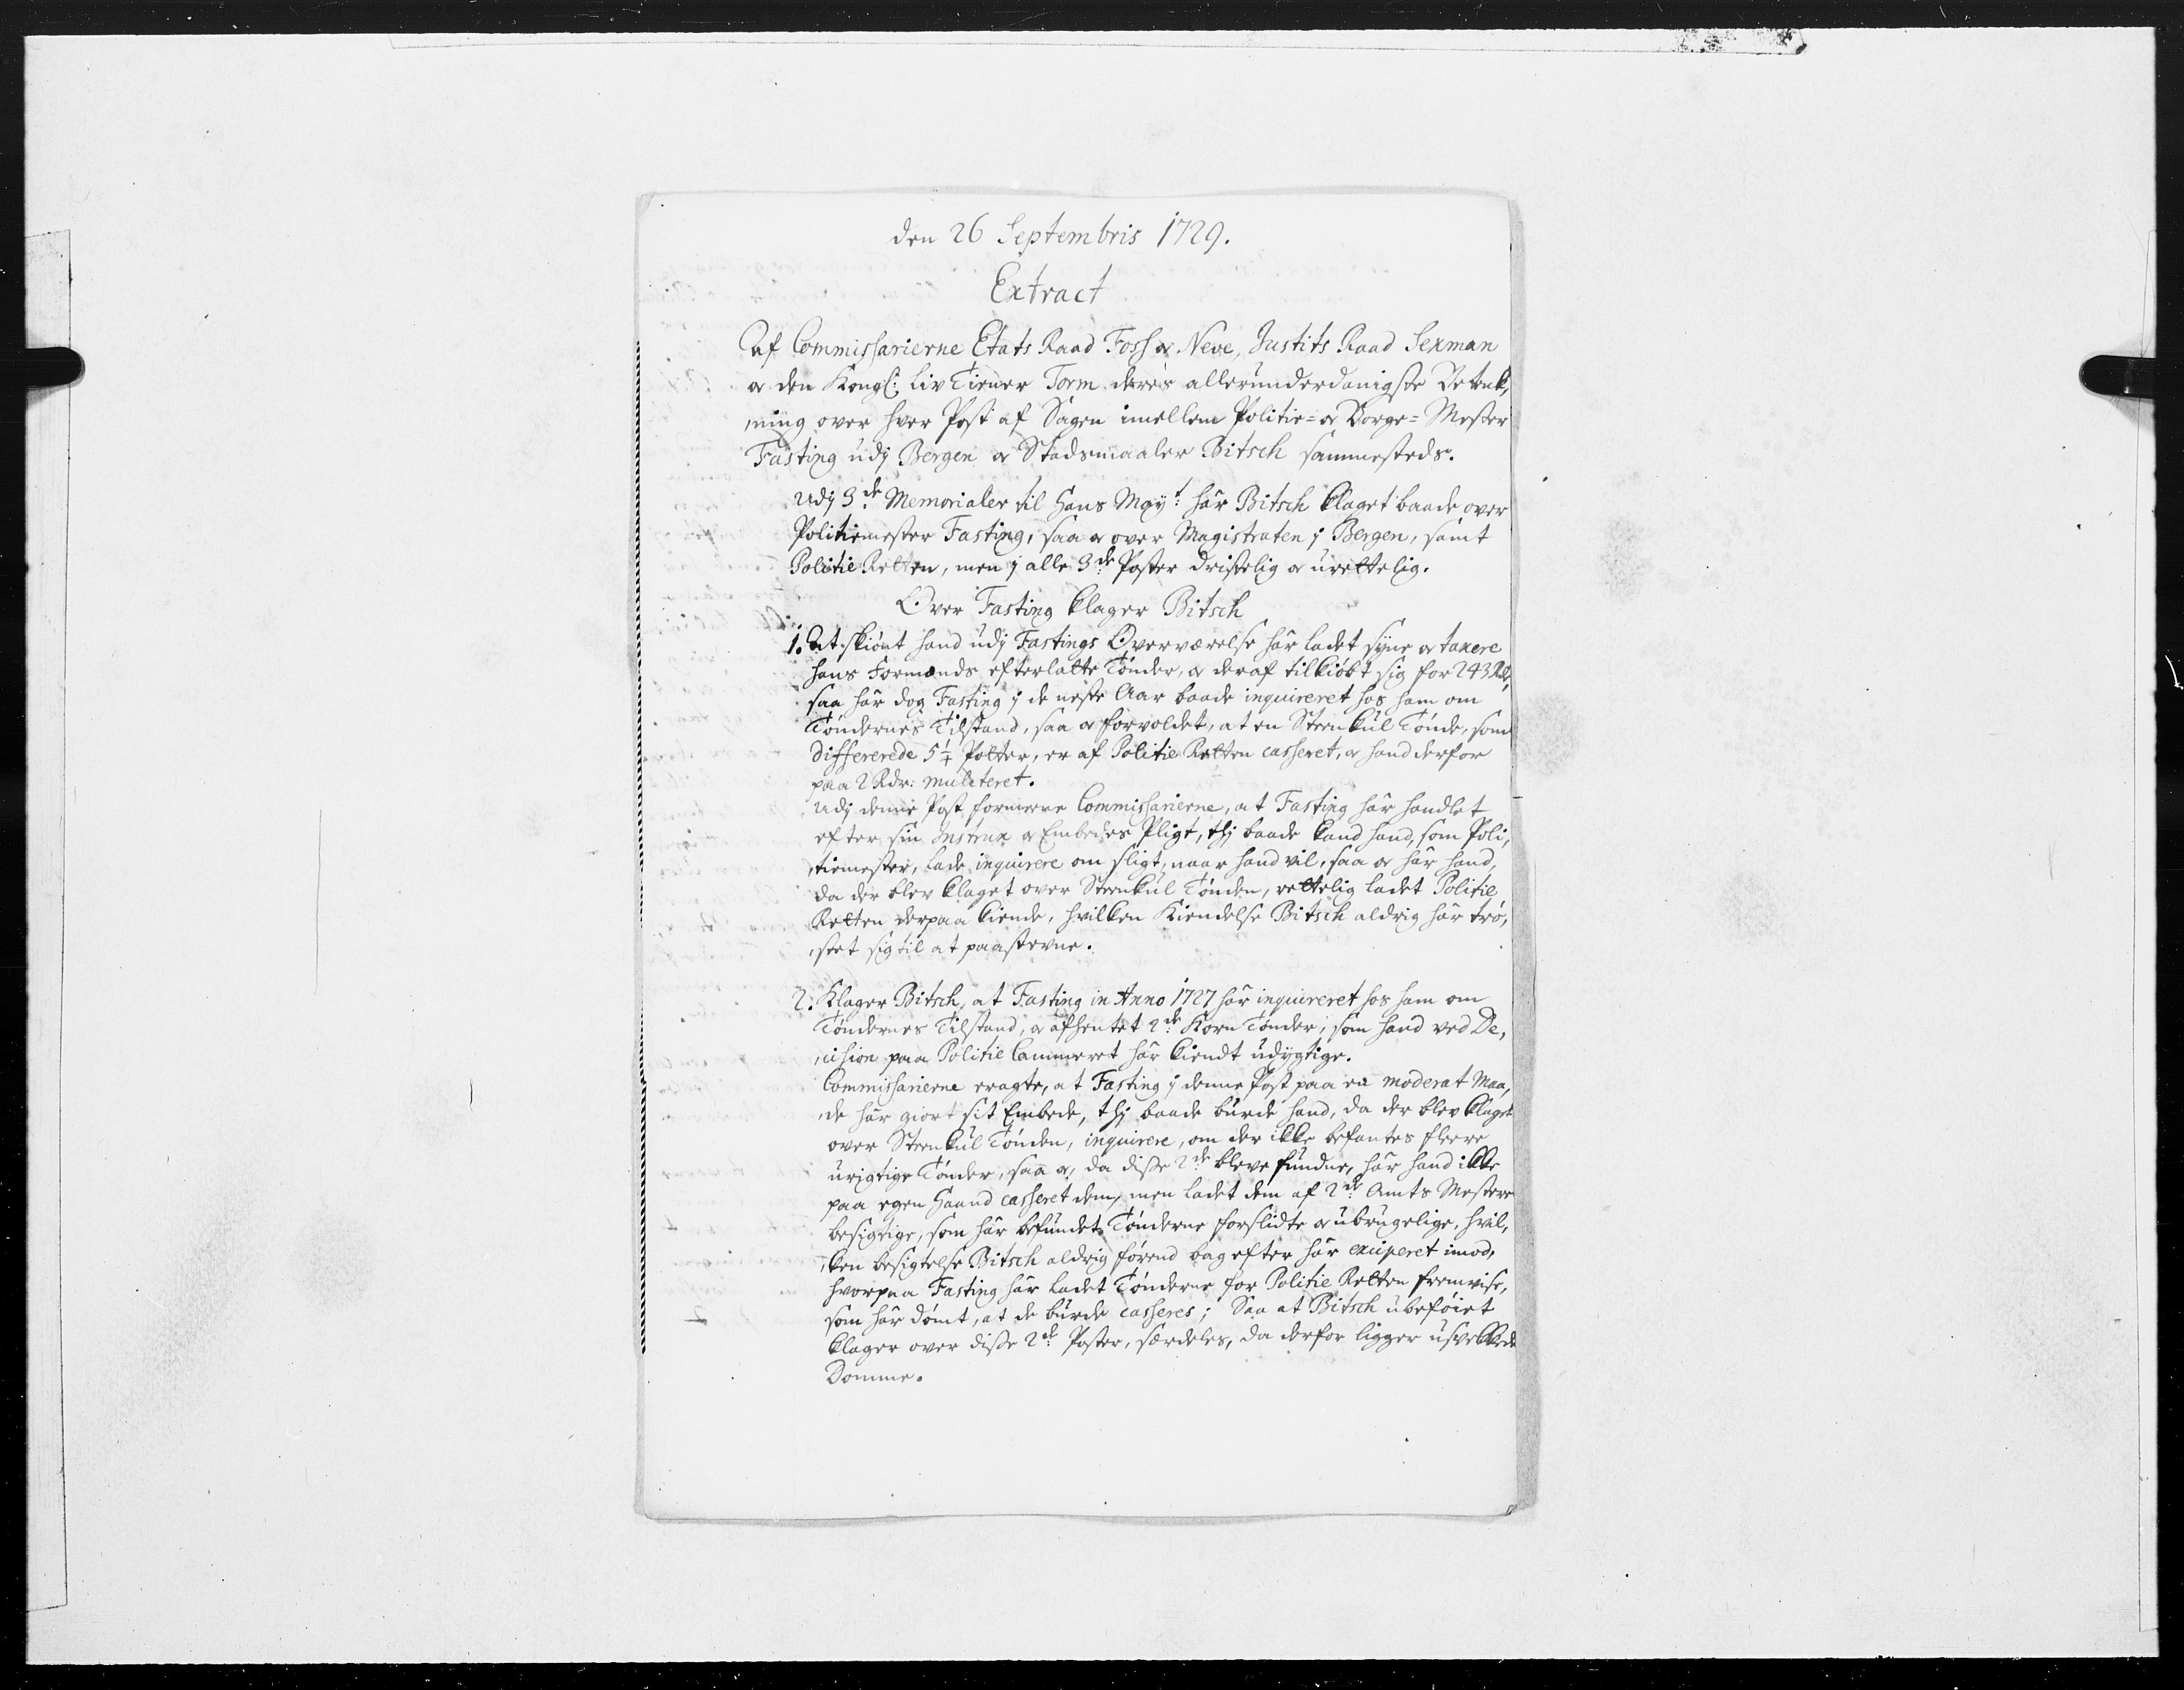 den 26 Septembris 1729.
Extract
Af Commissarierne Etats Raad Foss og Neve, Justits Raad Sexman
og den Kongl: Liv Tiener Torm deres allerunderdanigste Betenk,
,ning over hver Post af Sagen imellem Politie= og Borge= Mester
Fasting udj Bergen og Stadsmaaler Bitsch sammesteds.
Udj 3de Memorialer til Hans Mayt: har Bitsch klaget baade over
Politiemester Fasting, saa og over Magistraten j Bergen, samt
Politie Retten, men j alle 3de Poster dristelig og urettelig.
Over Fasting klager Bitsch
1. At skiønt hand udj Fastings Overværelse har ladet syne og taxere
hans Formands efterlatte Tønder, og deraf tilkiøbt sig for 243 Rdr,
saa har dog Fasting j de neste Aar baade inquireret hos ham om
Tøndernes Tilstand, saa og forvoldet, at en Steenkul Tønde, som
differerede 5 1/4 Potter, er af Politie Retten casseret, og hand derfor
paa 2 Rdr: mulcteret.
Udj denne Post formeene Commissarierne, at Fasting har handlet
efter sin Instrux og Embedes Pligt, thj baade kand hand, som Poli,
,tiemester, lade inquirere om sligt, naar hand vil, saa og har hand,
da der blev klaget over Steenkul Tønden, rettelig ladet Politie
Retten derpaa kiende, hvilken Kiendelse Bitsch aldrig har trø,
,stet sig til at paastevne.
2. Klager Bitsch, at Fasting in Anno 1727 har inquireret hos ham om
Tøndernes Tilstand, og afhentet 2de Korn Tønder, som hand ved De,
,cision paa Politie Cammeret har kiendt udygtige.
Commissarierne eragte, at Fasting j denne Post paa en moderat Maa,
,de har giort sit Embede, thj baade burde hand, da der blev klaget
over Steenkul Tønden, inquirere, om der ikke befantes fleere
urigtige Tønder, saa og, da disse 2de bleve fundne, har hand ikke
paa egen Haand casseret dem, men ladet dem af 2de Amts Mestere
besigtige, som har befundet Tønderne forslidte og ubrugelige, hvil,
,ken besigtelse Bitsch aldrig førend bagefter har exciperet imod,
hvorpaa Fasting har ladet Tønderne for Politie Retten fremvise,
som har dømt, at de burde casseres; Saa at Bitsch ubeføiet
klager over disse 2de Poster, særdeles, da derfor ligger usvekkede
Domme.